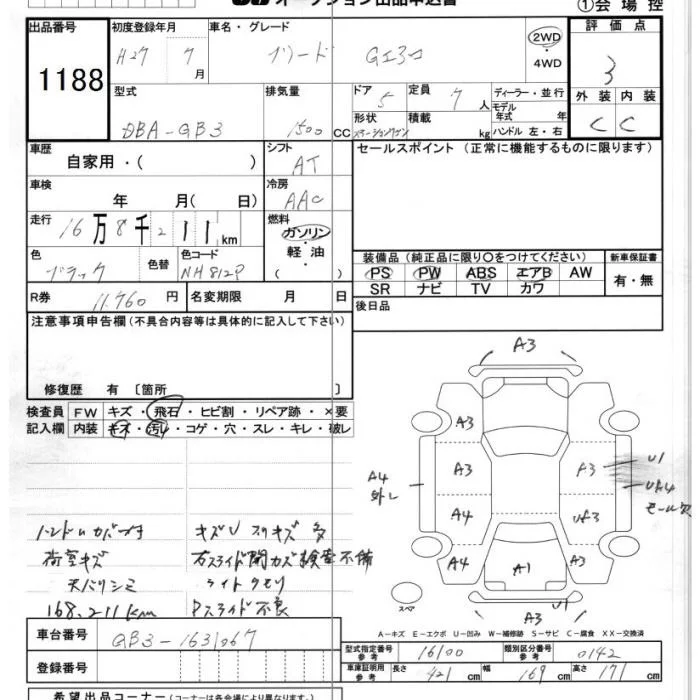 オークション出品申込書
①会場控
出品番号 初度登録年月 車名・グレード 評価点
1188 H27 7月 フリード GI30 2WD ・ 4WD 3
型式 排気量 ドア 定員 ディーラー・並行 外装 内装
DBA-GB3 1500 CC 5 7人 モデル年式 年式 C C
形状 積載 kg ハンドル 左・右
ステーションワゴン
車歴 シフト セールスポイント (正常に機能するものに限ります)
自家用・( ) AT
車検 冷房
年 月( 日) AAC
走行 燃料
16万8千211km ガソリン・軽油
色 色替 色コード 装備品(純正品に限り〇をつけてください) 新車保証書
ブラック NH812P ( ) PS PW ABS エアB AW 有・無
SR ナビ TV カワ
R券 11,760円 名変期限 月 日 後日品
注意事項申告欄(不具合内容等は具体的に記入して下さい)
修復歴 有 〔箇所 〕
検査員 FW キズ・飛石・ヒビ割・リペア跡・×要
記入欄 内装 キズ・汚れ・コゲ・穴・スレ・キレ・破レ
A3
A3
A3 A3 U1
A4 外し UA4 モール欠
A4
A4 A3
A1
スペア A3 U1
キズU スリキズ多
荷室キズ 右スライド開カズ検査不備
天バリシミ ライトクモリ
168,211km Pスライド不良
A-キズ E-エクボ U-凹み W-補修跡 S-サビ C-腐食 XX-交換済
車台番号 GB3-1631067
型式指定番号 参考 16100 類別区分番号 参考 0142
登録番号
車庫証明用 参考 長さ 421cm 幅 169cm 高さ 171cm
希望出品コーナー(コーナーは各会場により異なります)